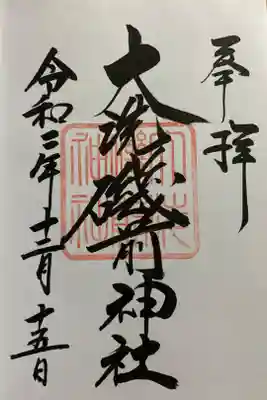 奉拝
大洗磯前神社
令和二年十二月十五日